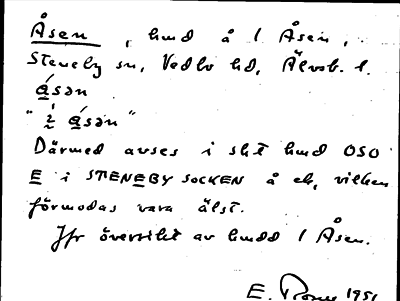 Åsen, hmd å 1 Åsen,
Steneby sn, Vedbo hd, Älvsb. l.
ásən
"i ásən"
Därmed avses i sht hmd OSO
E i STENEBY SOCKEN å ek, vilken
förmodas vara älst.
Jfr översikt av hmdd 1 Åsen.
E. 1951